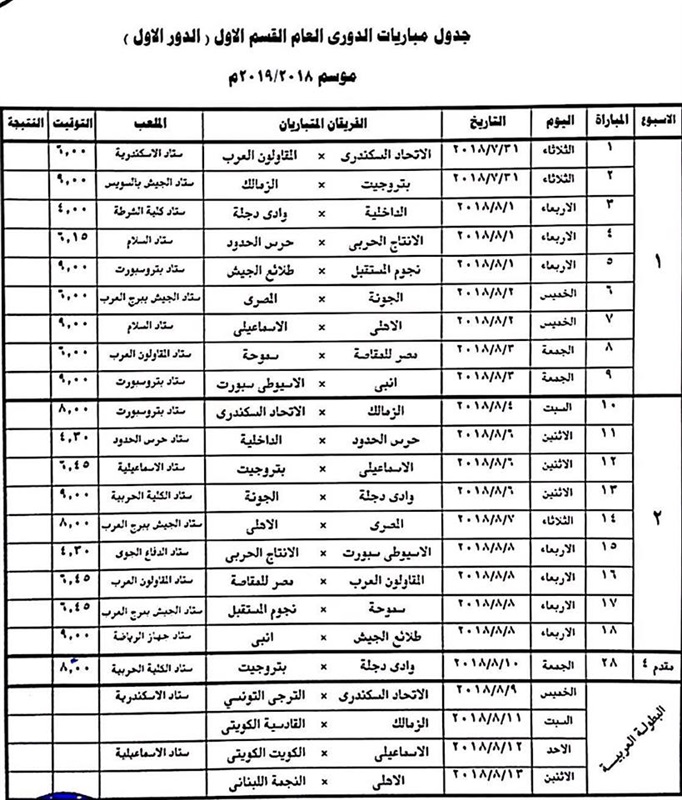 جدول مباريات الدورى العام القسم الاول ( الدور الاول )
موسم ٢٠١٩/٢٠١٨م
الاسبوع المباراة اليوم التاريخ الفريقان المتباريان الملعب التوقيت النتيجة
١
١ الثلاثاء ٢٠١٨/٧/٣١ الاتحاد السكندرى × المقاولون العرب ستاد الاسكندرية ٦,٠٠
٢ الثلاثاء ٢٠١٨/٧/٣١ بتروجيت × الزمالك ستاد الجيش بالسويس ٩,٠٠
٣ الاربعاء ٢٠١٨/٨/١ الداخلية × وادى دجلة ستاد كلية الشرطة ٤,٠٠
٤ الاربعاء ٢٠١٨/٨/١ الانتاج الحربى × حرس الحدود ستاد السلام ٦,١٥
٥ الاربعاء ٢٠١٨/٨/١ نجوم المستقبل × طلائع الجيش ستاد بتروسبورت ٩,٠٠
٦ الخميس ٢٠١٨/٨/٢ الجونة × المصرى ستاد الجيش ببرج العرب ٦,٠٠
٧ الخميس ٢٠١٨/٨/٢ الاهلى × الاسماعيلى ستاد السلام ٩,٠٠
٨ الجمعة ٢٠١٨/٨/٣ مصر للمقاصة × سموحة ستاد المقاولون العرب ٦,٠٠
٩ الجمعة ٢٠١٨/٨/٣ انبى × الاسيوطى سبورت ستاد بتروسبورت ٩,٠٠
٢
١٠ السبت ٢٠١٨/٨/٤ الزمالك × الاتحاد السكندرى ستاد بتروسبورت ٨,٠٠
١١ الاثنين ٢٠١٨/٨/٦ حرس الحدود × الداخلية ستاد حرس الحدود ٤,٣٠
١٢ الاثنين ٢٠١٨/٨/٦ الاسماعيلى × بتروجيت ستاد الاسماعيلية ٦,٤٥
١٣ الاثنين ٢٠١٨/٨/٦ وادى دجلة × الجونة ستاد الكلية الحربية ٩,٠٠
١٤ الثلاثاء ٢٠١٨/٨/٧ المصرى × الاهلى ستاد الجيش ببرج العرب ٨,٠٠
١٥ الاربعاء ٢٠١٨/٨/٨ الاسيوطى سبورت × الانتاج الحربى ستاد الدفاع الجوى ٤,٣٠
١٦ الاربعاء ٢٠١٨/٨/٨ المقاولون العرب × مصر للمقاصة ستاد المقاولون العرب ٦,٤٥
١٧ الاربعاء ٢٠١٨/٨/٨ سموحة × نجوم المستقبل ستاد الجيش ببرج العرب ٦,٤٥
١٨ الاربعاء ٢٠١٨/٨/٨ طلائع الجيش × انبى ستاد جهاز الرياضة ٩,٠٠
مقدم ٤ ٢٨ الجمعة ٢٠١٨/٨/١٠ وادى دجلة × بتروجيت ستاد الكلية الحربية ٨,٠٠
البطولة العربية
الخميس ٢٠١٨/٨/٩ الاتحاد السكندرى × الترجى التونسي ستاد الاسكندرية
السبت ٢٠١٨/٨/١١ الزمالك × القادسية الكويتى
الاحد ٢٠١٨/٨/١٢ الاسماعيلى × الكويت الكويتى ستاد الاسماعيلية
الاثنين ٢٠١٨/٨/١٣ الاهلى × النجمة اللبنانى